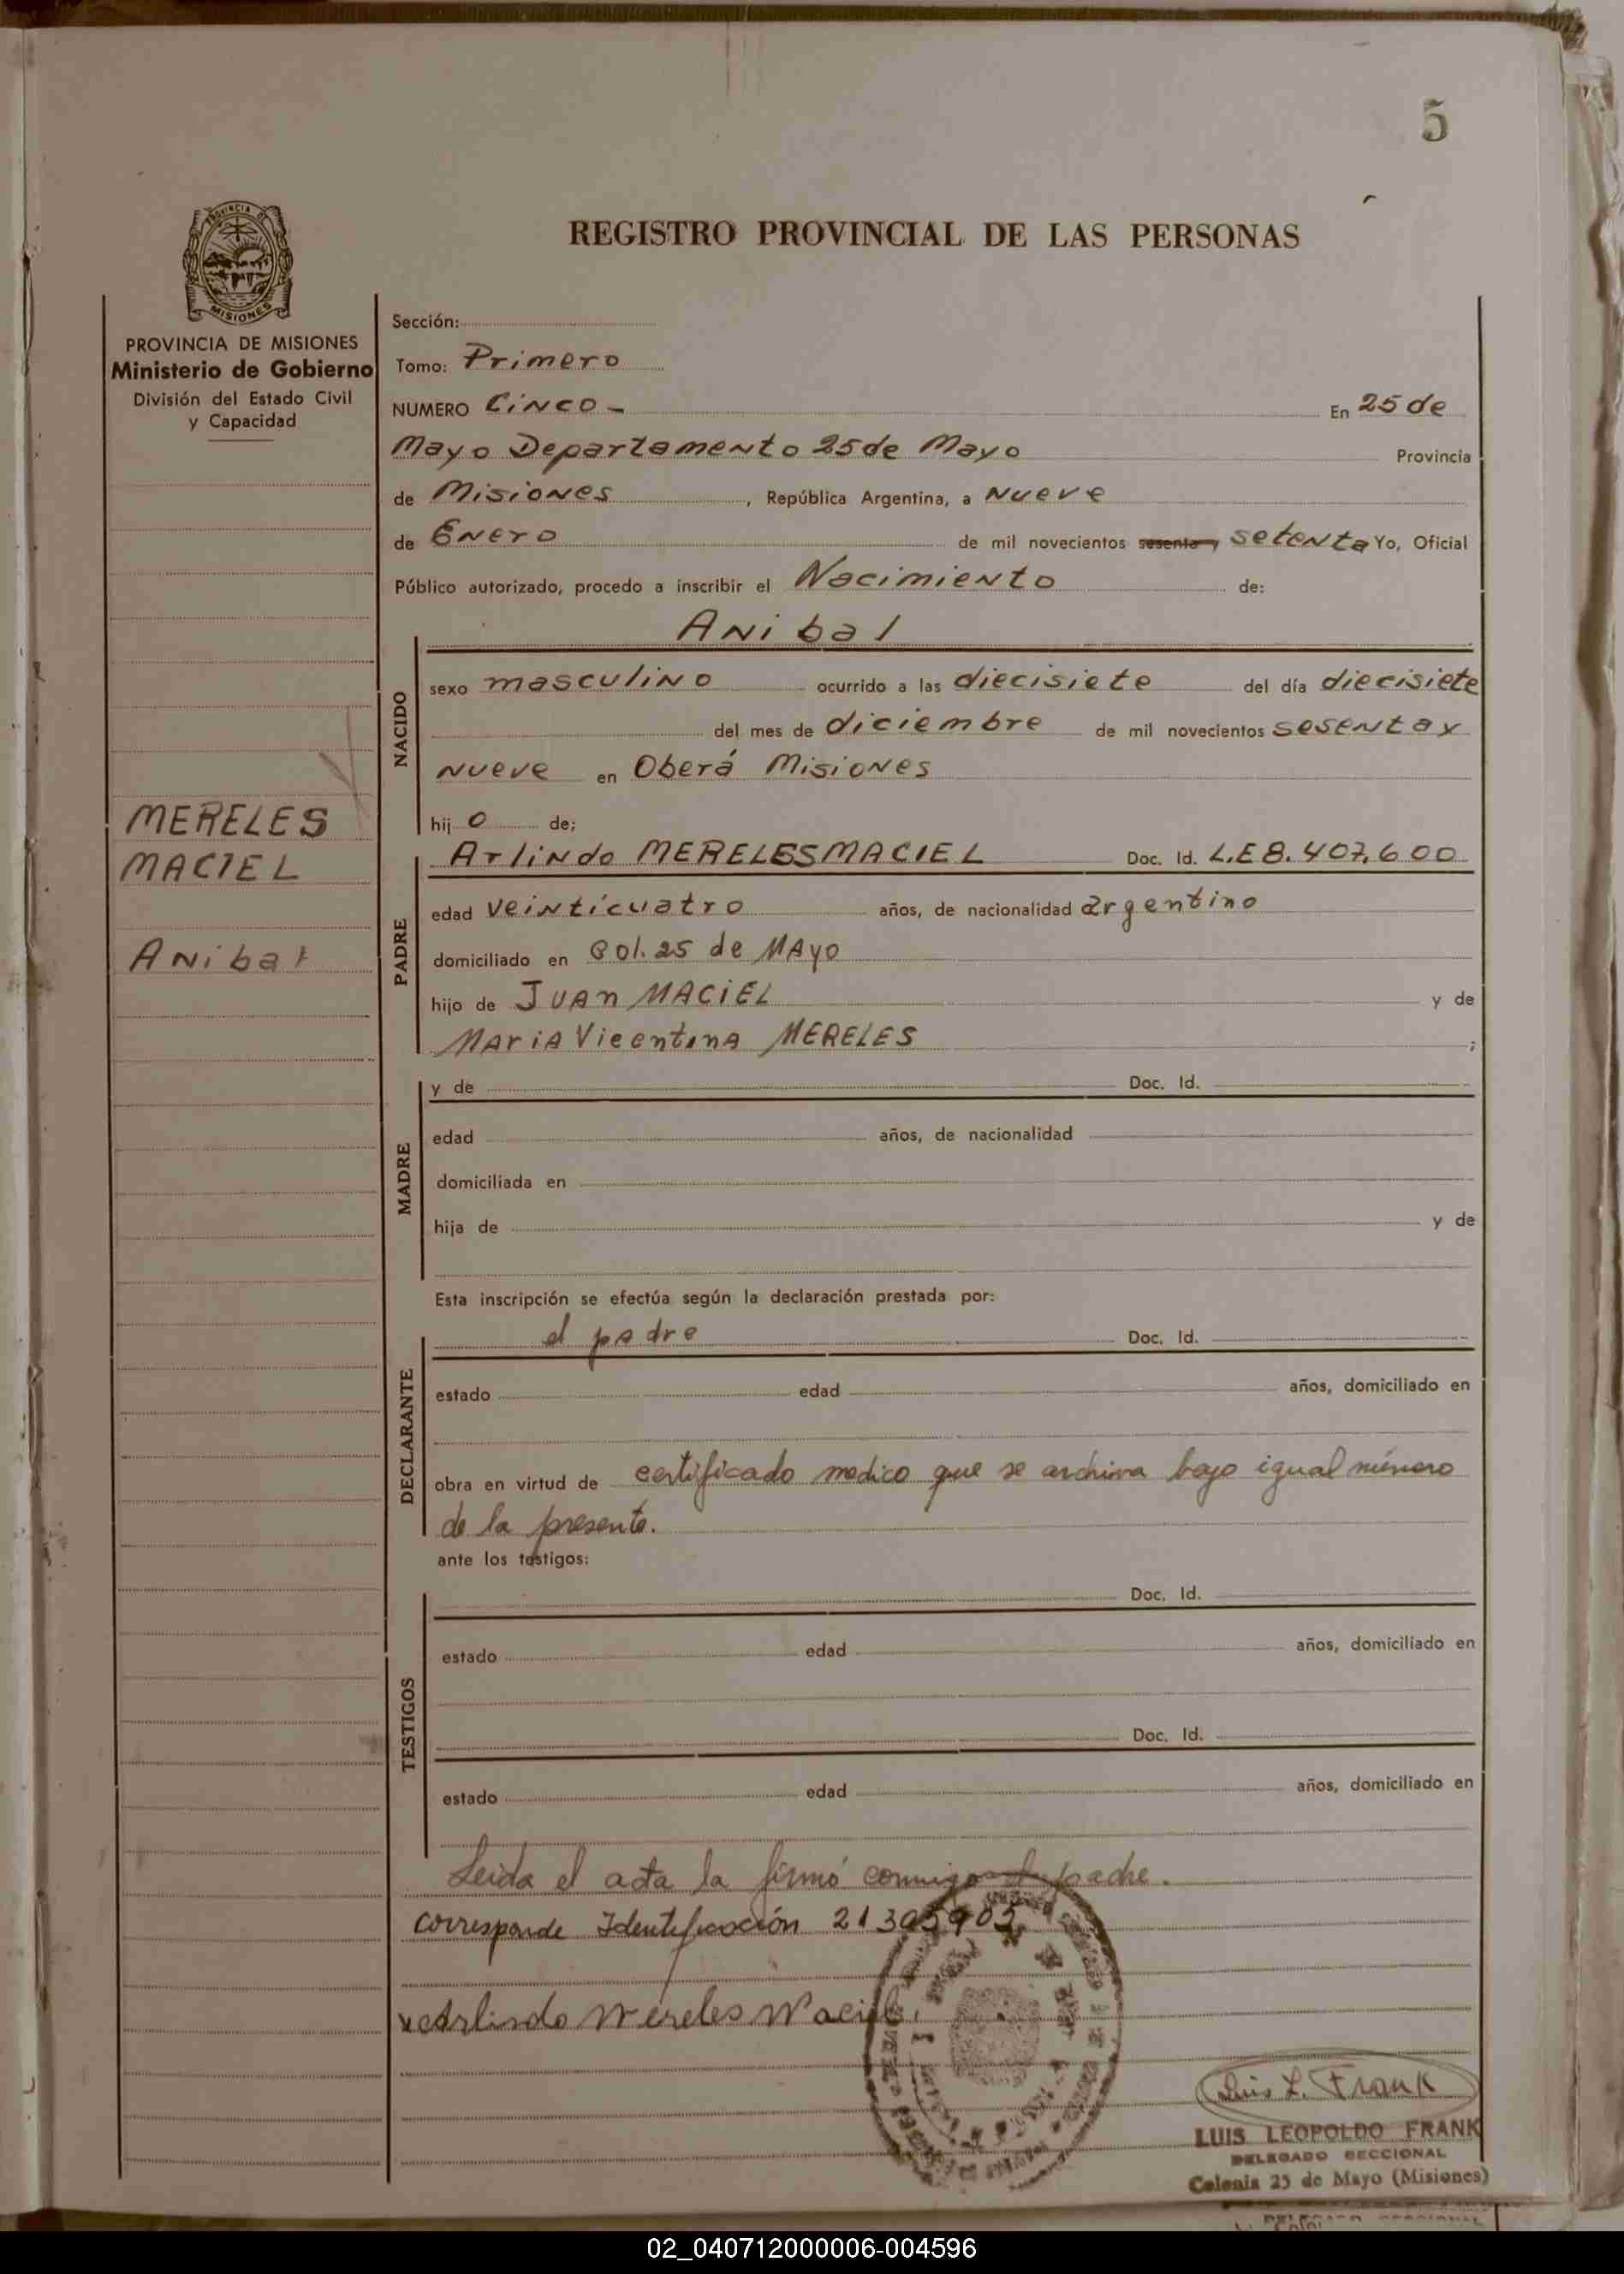 5
PROVINCIA DE
MISIONES
REGISTRO PROVINCIAL DE LAS PERSONAS
PROVINCIA DE MISIONES
Ministerio de Gobierno
División del Estado Civil
y Capacidad
MERELES
MACIEL
Anibal
Sección:
Tomo: Primero
NUMERO CiNCO - En 25 de
Mayo Departamento 25 de Mayo Provincia
de MisioNes, República Argentina, a Nueve
de ENero de mil novecientos sesenta y setenta Yo, Oficial
Público autorizado, procedo a inscribir el Nacimiento de:
Anibal
NACIDO
sexo masculino ocurrido a las diecisiete del día diecisiete
del mes de diciembre de mil novecientos sesenta y
nueve en Oberá Misiones
hij o de;
PADRE
Arlindo MERELES MACIEL Doc. Id. L.E 8.407.600
edad veinticuatro años, de nacionalidad argentino
domiciliado en Col. 25 de MAyo
hijo de JUAn MACiEL y de
MAriA Vicentina MERELES ;
MADRE
y de Doc. Id.
edad años, de nacionalidad
domiciliada en
hija de y de
Esta inscripción se efectúa según la declaración prestada por:
DECLARANTE
el padre Doc. Id.
estado edad años, domiciliado en
obra en virtud de certificado medico que se archiva bajo igual número
de la presente.
ante los testigos:
TESTIGOS
Doc. Id.
estado edad años, domiciliado en
Doc. Id.
estado edad años, domiciliado en
Leida el acta la firmó conmigo el padre.
corresponde Identificación 21305905
x Arlindo Mereles Maciel
Luis L. Frank
LUIS LEOPOLDO FRANK
DELEGADO SECCIONAL
Colonia 25 de Mayo (Misiones)
02_040712000006-004596